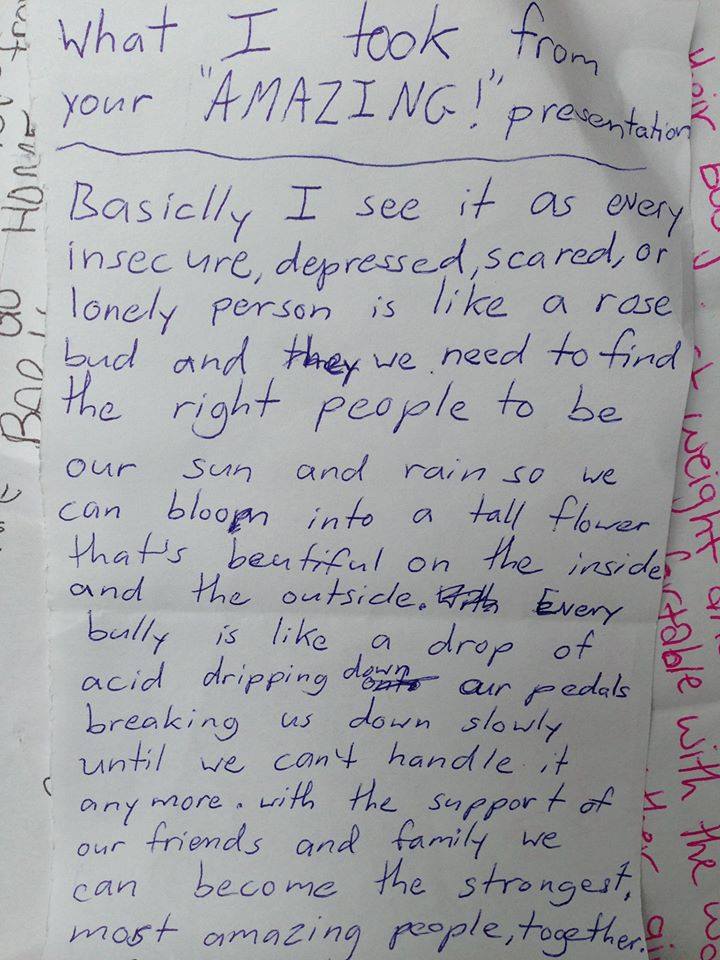 What I took from
your "AMAZING!" presentation
Basiclly I see it as every
insecure, depressed, scared, or
lonely person is like a rose
bud and they we need to find
the right people to be
our sun and rain so we
can bloom into a tall flower
that's beutiful on the inside
and the outside. With Every
bully is like a drop of
acid dripping down onto our pedals
breaking us down slowly
until we can't handle it
anymore. with the support of
our friends and family we
can become the strongest,
most amazing people, together.
HOME
GO
weight
with the